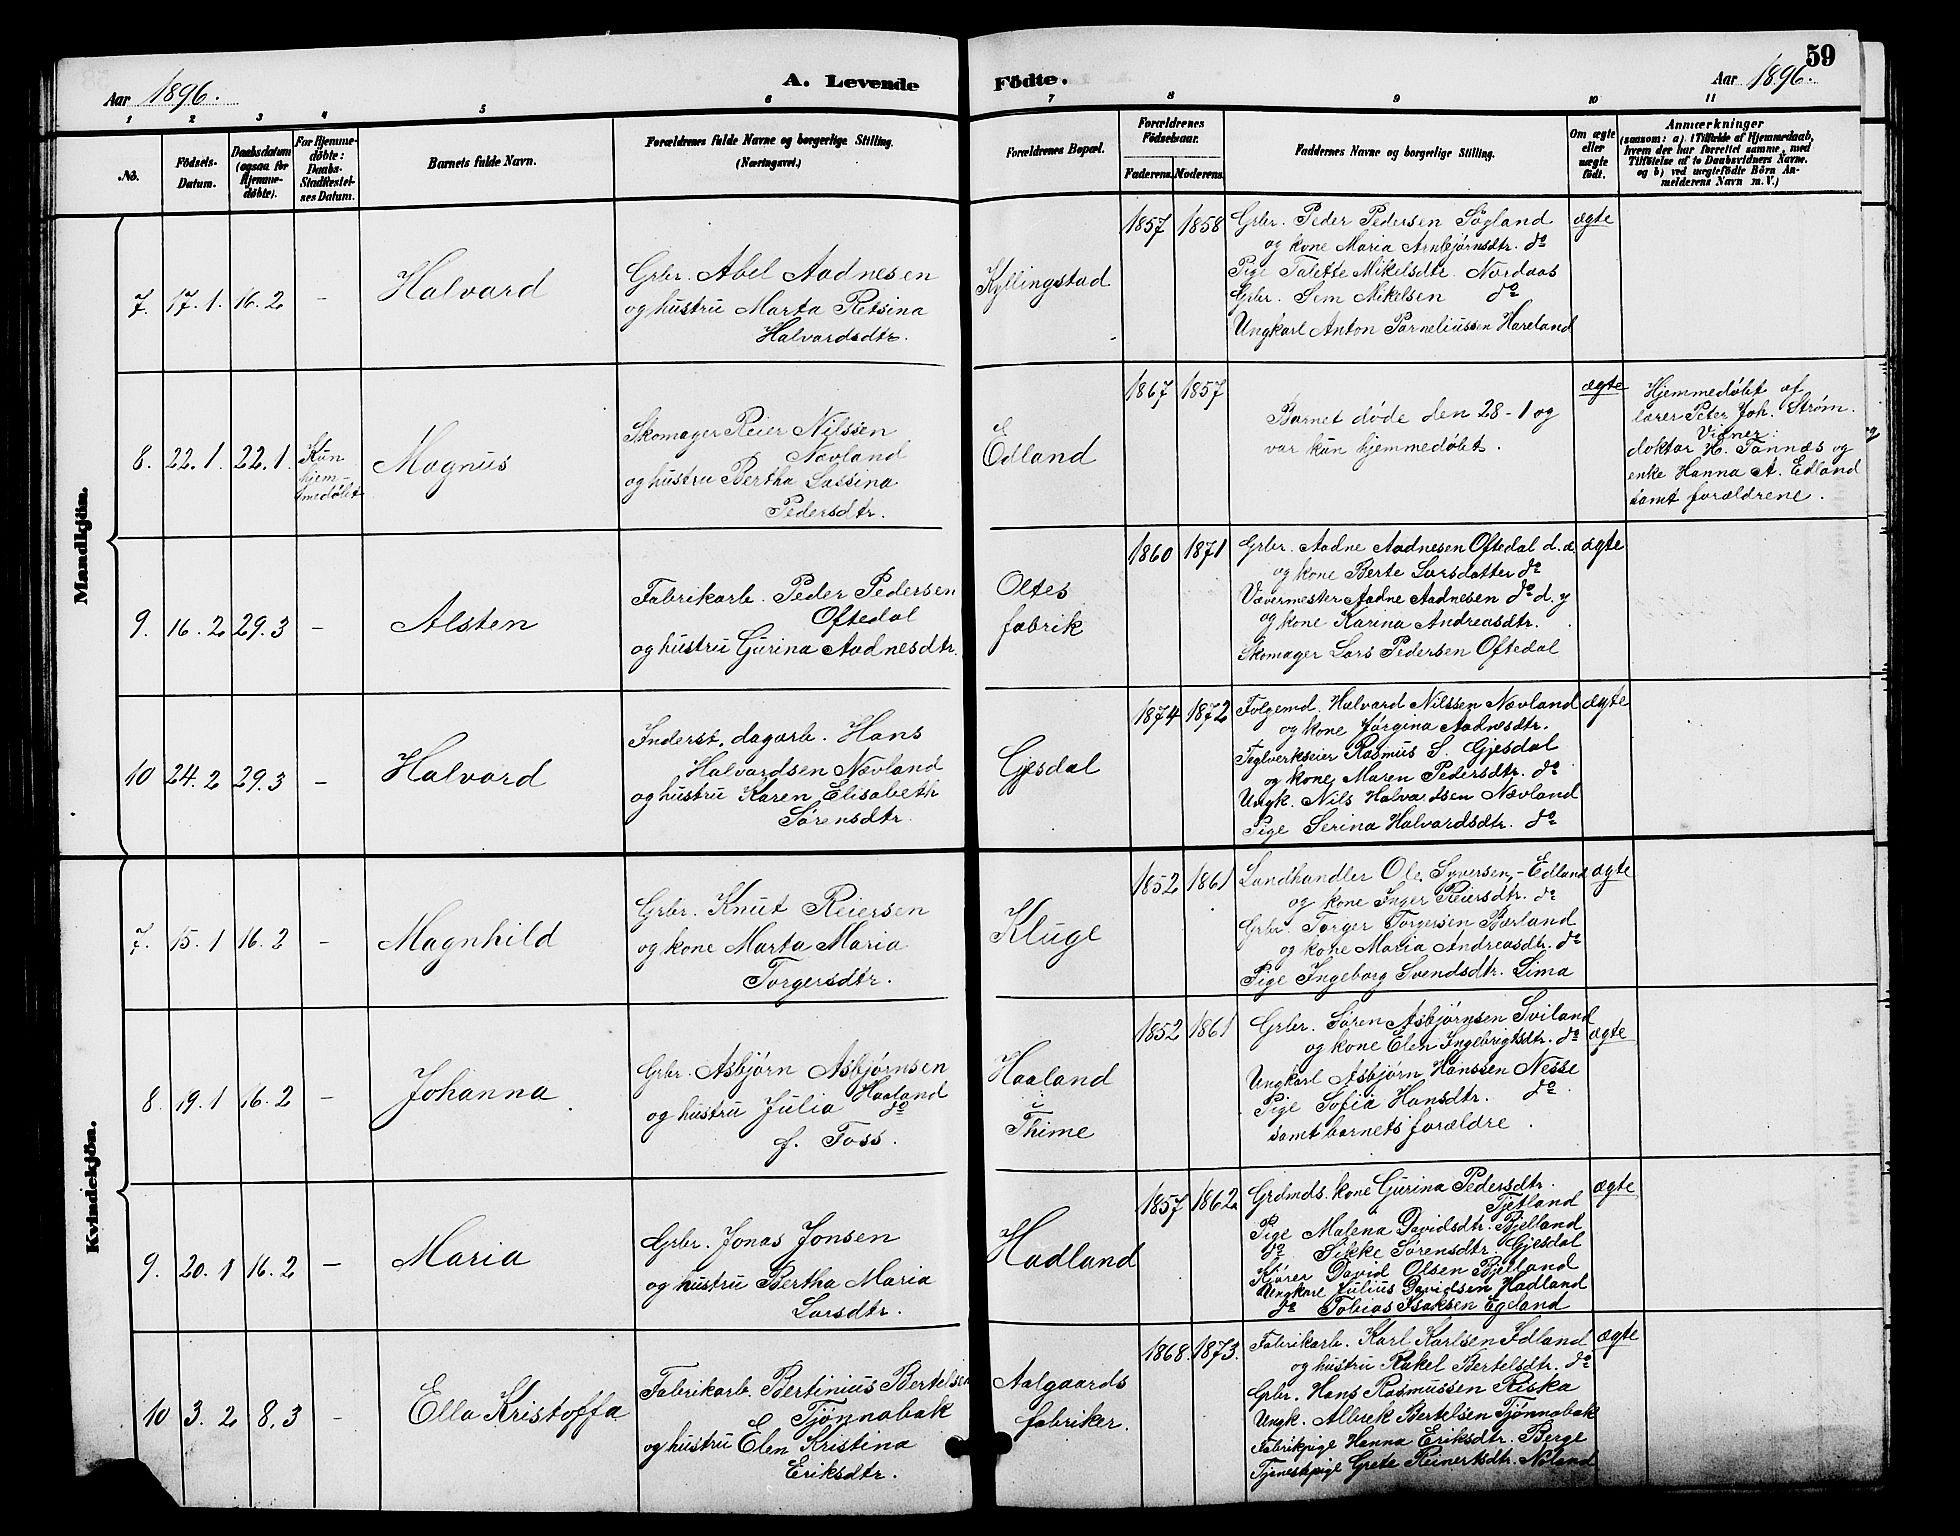 59
Aar 1896.
A. Levende
Födte.
Aar 1896.
1 2 3 4 5 6 7 8 9 10 11
No.
Födsels-
Datum.
Daabsdatum
(ogsaa for
Hjemme-
döbte).
For Hjemme-
döbte:
Daabs-
Stadfæstel-
ses Datum.
Barnets fulde Navn.
Forældrenes fulde Navne og borgerlige Stilling.
(Næringsvei.)
Forældrenes Bopæl.
Forældrenes
Födselsaar.
Faderens. Moderens.
Faddernes Navne og borgerlige Stilling.
Om ægte
eller
uægte
födt.
Anmærkninger
(saasom: a) i Tilfælde af Hjemmedaab,
hvem der har forrettet samme, med
Tilföielse af to Daabsvidners Navne.
og b) ved uægtefödte Börn An-
melderens Navn m. V.)
Mandkjön.
7. 17.1. 16.2 – Halvard
Grbr. Abel Aadnesen
og hustru Marta Retsina
Halvardsdtr.
Kyllingstad
1857 1858
Grbr. Peder Pedersen Søyland
og kone Maria Arnbjørnsdtr. do
Pige Talette Mikelsdtr. Nordaas
Grbr. Sem Mikelsen do
Ungkarl Anton Parneliussen Hareland
ægte
8. 22.1. 22.1.
Kun
hjem-
medøbt
Magnus
Skomager Reier Nilssen
Nævland
og hustru Bertha Lassina
Pedersdtr.
Edland
1867 1857
Barnet døde den 28-1 og
var kun hjemmedøbt.
ægte
Hjemmedøbt af
lærer Peter Joh. Strøm.
Vidner:
doktor H. Tannæs og
enke Hanna A. Edland
samt forældrene.
9. 16.2 29.3 – Alsten
Fabrikarb. Peder Pedersen
Oftedal
og hustru Gurina Aadnesdtr.
Oltes
fabrik
1860 1871
Grbr. Aadne Aadnesen Oftedal d.æ
og kone Berte Larsdatter do
Vævermester Aadne Aadnesen do d.y
og kone Karina Andreasdtr.
Skomager Lars Pedersen Oftedal
ægte
10 24.2 29.3 – Halvard
Inderst, dagarb. Hans
Halvardsen Nævland
og hustru Karen Elisabeth
Sørensdtr.
Gjesdal
1874 1872
Folgemd. Halvard Nilssen Nævland
og kone Jørgina Aadnesdtr.
Teglverkseier Rasmus S. Gjesdal
og kone Maren Pedersdtr. do
Ungk. Nils Halvardsen Nævland
Pige Serina Halvardsdtr. do
ægte
Kvindekjön.
7. 15.1 16.2 – Magnhild
Grbr. Knut Reiersen
og kone Marta Maria
Torgersdtr.
Kluge
1852 1861
Landhandler Ole Syversen, Edland
og kone Inger Reiersdtr. do
Grbr. Torger Torgersen Bærland
og kone Maria Andreasdtr. do
Pige Ingeborg Svendsdtr. Lima
ægte
8. 19.1 16.2 – Johanna
Grbr. Asbjørn Asbjørnsen
Haaland
og hustru Julia do
f. Foss.
Haaland
i
Thime
1852 1861
Grbr. Søren Asbjørnsen Sviland
og kone Elen Ingebrigtsdtr. do
Ungkarl Asbjørn Hanssen Nesse
Pige Sofia Hansdtr. do
samt barnets forældre.
ægte
9. 20.1 16.2 – Maria
Grbr. Jonas Jonsen
og hustru Bertha Maria
Larsdtr.
Hadland
1857 1862
Grdmds. kone Gurina Pedersdtr.
Tjetland
Pige Malena Davidsdtr. Bjelland
do Sikke Sørensdtr. Gjesdal
Kjører David Olsen Bjelland
Ungkarl Julius Davidsen Hadland
do Tobias Isaksen Egeland
ægte
10 3.2 8.3 – Ella Kristoffa
Fabrikarb. Bertinius Bertelsen
Tjønnabak
og hustru Elen Kristina
Eriksdtr.
Aalgaards
fabriker.
1868. 1873.
Fabrikarb. Karl Karlsen Idland
og hustru Rakel Bertelsdtr. do
Grbr. Hans Rasmussen Riska
Ungk. Albrek Bertelsen Tjønnabak
Fabrikpige Hanna Eriksdtr. Berge
Tjenestpige Grete Reinertsdtr. Noland
ægte